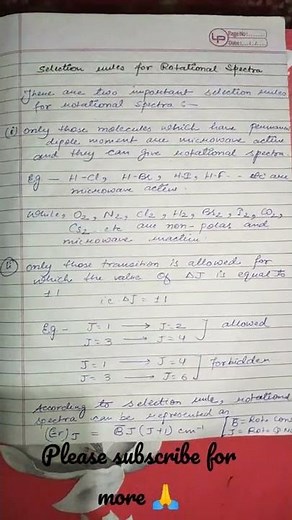 LP
Page No.:
Date: / /
Selection rules for Rotational Spectra
There are two important selection rules
for rotational spectra :-
(i) only those molecules which have permanent
dipole moment are microwave active
and they can give rotational spectra
Eg - H-Cl, H-Br, H-I, H-F - etc are
microwave active.
while, O2, N2, Cl2, H2, Br2, I2, CO2,
CS2 etc are non-polar and
microwave inactive
(ii) only those transition is allowed for
which the value of ΔJ is equal to
±1
i.e ΔJ = ±1
Eg - J=1 → J=2
J=3 → J=4 ] allowed
J=1 → J=4
J=3 → J=6 ] forbidden
According to selection rule, rotational
spectra can be represented as
(Er)J = BJ(J+1) cm-1 [B = Rot. Cons
J = Rot.
Please subscribe for
more 🙏